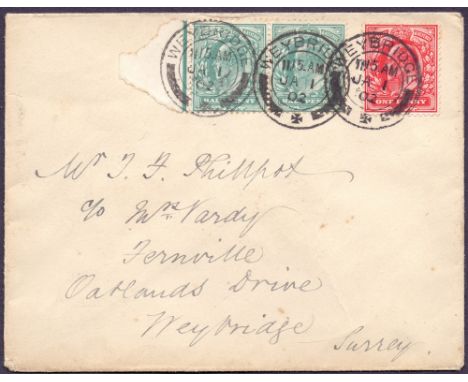 WEYBRIDGE WEYBRIDGE WEYBRIDGE
11 15 AM 11 15 AM 11 15 AM
JA 1 JA 1 JA 1
02 02 02
HALFPENNY HALFPENNY ONE PENNY
Mr J. F. Phillpot
c/o Mrs Vardy
Fernville
Oatlands Drive
Weybridge
Surrey